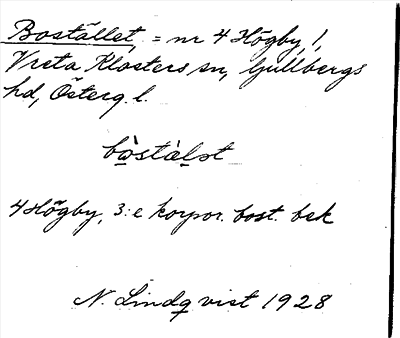 Boställe​t, = nr 4 Högby, 1,
Vreta Klosters sn, Gullbergs
hd, Österg. l.
bòstàlset
4 Högby, 3:e korpor. bost. bek
N. Lindqvist 1928